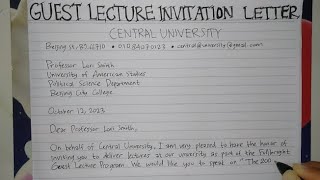 GUEST LECTURE INVITATION LETTER
CENTRAL UNIVERSITY
Beijing St. • central@university@gmail.com
Professor Lori Smith
University of American Studies
Political Science Department
Beijing City College
October 12, 2023
Dear Professor Lori Smith,
On behalf of Central University, I am very pleased to have the honor of
inviting you to deliver lectures at our university as part of the Fulbright
Guest Lecture Program. We would like you to speak on "The 200